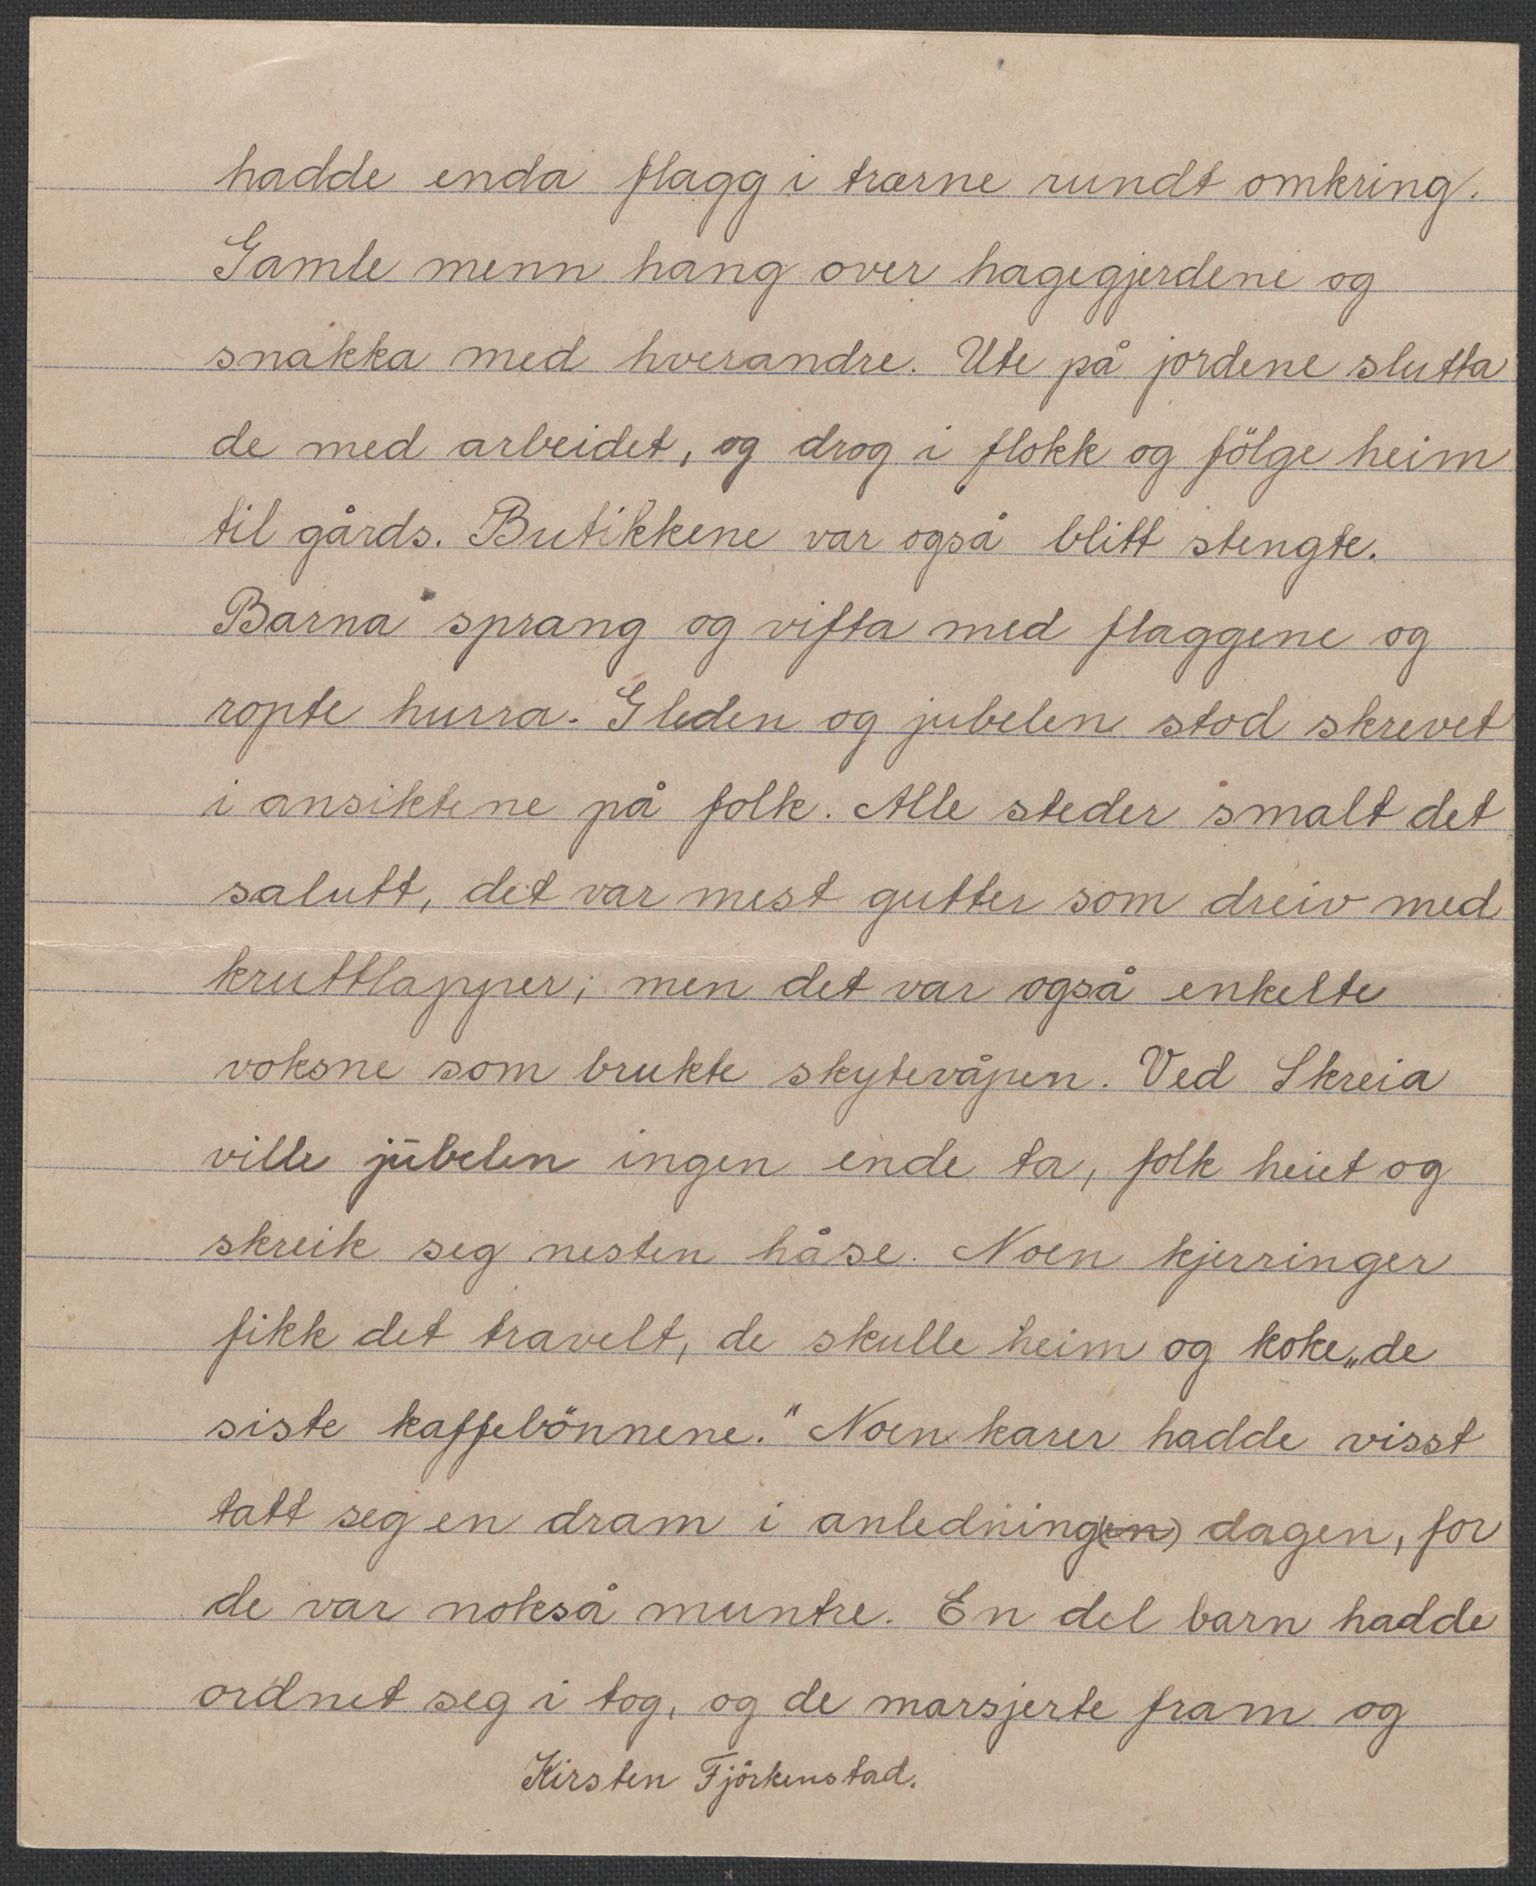 hadde enda flagg i trærne rundt omkring.
Gamle menn hang over hagegjerdene og
snakka med hverandre. Ute på jordene slutta
de med arbeidet, og drog i flokk og fölge heim
til gårds. Butikkene var også blitt stengte.
Barna sprang og vifta med flaggene og
ropte hurra. Gleden og jubelen stod skrevet
i ansiktene på folk. Alle steder smalt det
salutt, det var mest gutter som dreiv med
kruttlapper; men det var også enkelte
voksne som brukte skytevåpen. Ved Skreia
ville jūbelen ingen ende ta, folk heiet og
skreik seg nesten håse. Noen kjerringer
fikk det travelt, de skulle heim og koke „de
siste kaffebönnene." Noen karer hadde visst
tatt seg en dram i anledning(en) dagen, for
de var nokså muntre. En del barn hadde
ordnet seg i tog, og de marsjerte fram og
Kirsten Fjörkenstad.